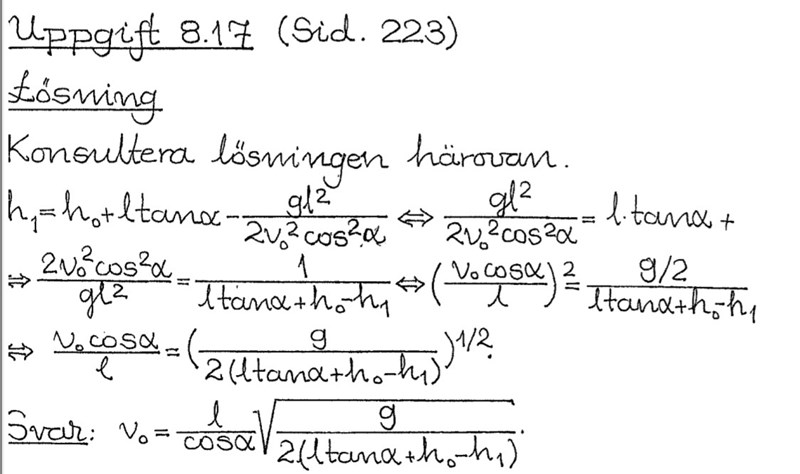 Uppgift 8.17 (Sid. 223)
Lösning
Konsultera lösningen härovan.
h₁=h₀+ltanα-gl²/(2v₀²cos²α) ⇔ gl²/(2v₀²cos²α) = l·tanα +
⇒ (2v₀²cos²α)/(gl²) = 1/(ltanα+h₀-h₁) ⇔ ((v₀cosα)/l)² = (g/2)/(ltanα+h₀-h₁)
⇔ (v₀cosα)/l = (g/(2(ltanα+h₀-h₁)))^1/2.
Svar: v₀ = l/cosα √(g/(2(ltanα+h₀-h₁))).